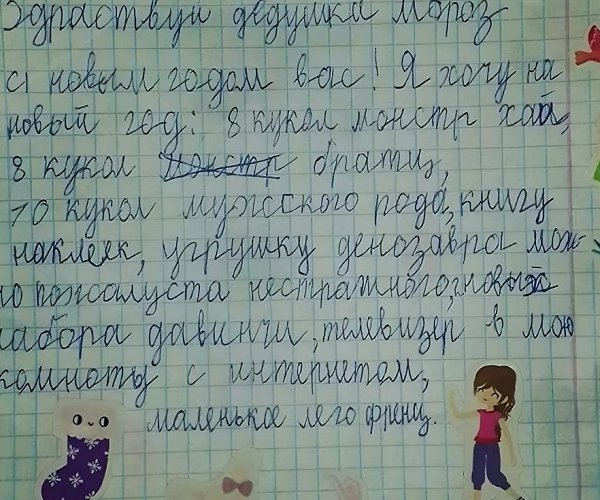 Здраствуй дедушка мороз
с новым годом вас! Я хочу на
новый год: 8 кукол монстр хай,
8 кукол монстр братц,
10 кукол мужсского рода, книгу
наклеяк, угрушку денозавра мож-
но пожалуста нестрашного,
набора давинчи, телевизер в мою
комноты с интернетом,
маленькое лего френц.